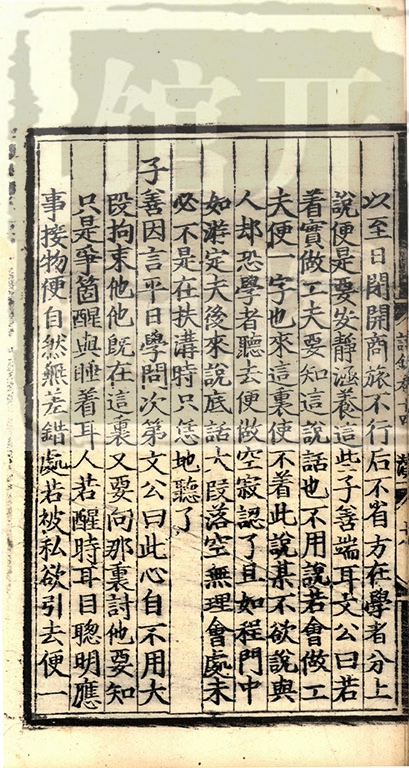 以至日閉關商旅不行后不省方在學者分上
說便是要安靜涵養這些子善端耳文公曰若
着實做工夫要知這說話也不用說若會做工
夫便一字也來這裏使不着此說某不欲說與
人却恐學者聽去便做空寂認了且如程門中
如游定夫後來說底話大段落空無理會處未
必不是在扶溝時只恁地聽了
子善因言平日學問次第文公曰此心自不用大
段拘束他他既在這裏又要向那裏討他要知
只是爭箇醒與睡着耳人若醒時耳目聰明應
事接物便自然無差錯處若被私欲引去便一